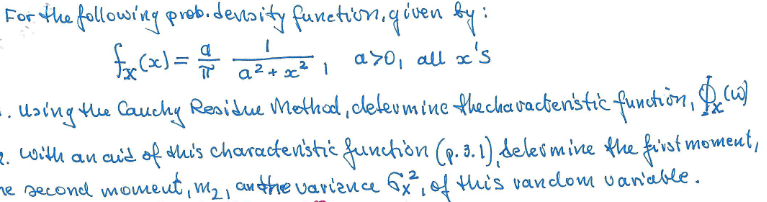 For the following prob. density function, given by:
fx(x) = a/π 1/(a² + x²), a>0, all x's
. Using the Cauchy Residue Method, determine the characteristic function, Φx(ω)
2. With an aid of this characteristic function (p. 3.1), determine the first moment,
he second moment, m₂, and the varience σx², of this random variable.